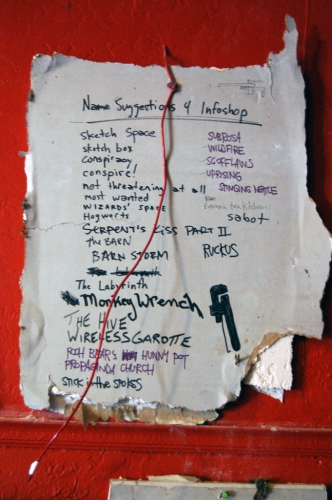 Name Suggestions 4 Infoshop
sketch space
sketch box
conspiracy
conspire!
not threatening at all
most wanted
WIZARDS' SPACE
Hogwarts
SERPENT'S KISS PART II
The BARN
BARN STORM
The Labyrinth
Monkey Wrench
THE HIVE
WIRELESS GAROTTE
POOH BEAR'S HUNNY POT
PROPAGANDA CHURCH
STICK in the SPOKES
SUBROSA
WILDFIRE
SCOFFLAWS
UPRISING
STINGING NETTLE
sabot
RUCKUS